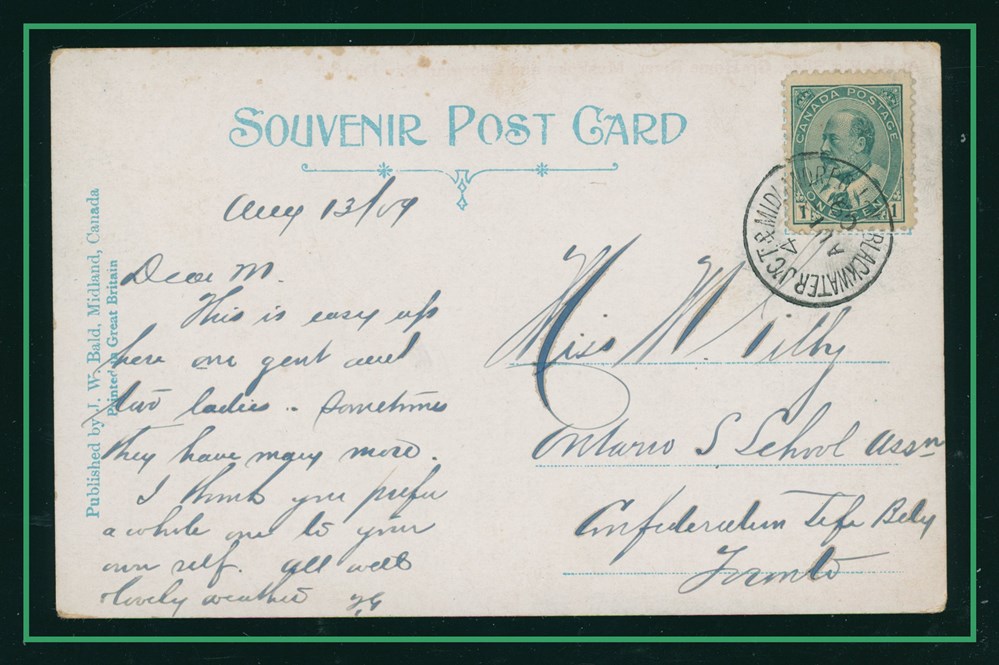 SOUVENIR POST CARD
CANADA POSTAGE
ONE CENT
1
MIDLAND & BLACKWATER J'CT.
Aug 13/09
Published by J. W. Bald, Midland, Canada
Printed in Great Britain
Dear M.
This is easy up
here one gent and
two ladies. Sometimes
they have many more.
I think you prefer
a whole one to your
own self. All well
lovely weather
Miss M Tilby
Ontario S School Assn
Confederation Life Bldg
Toronto